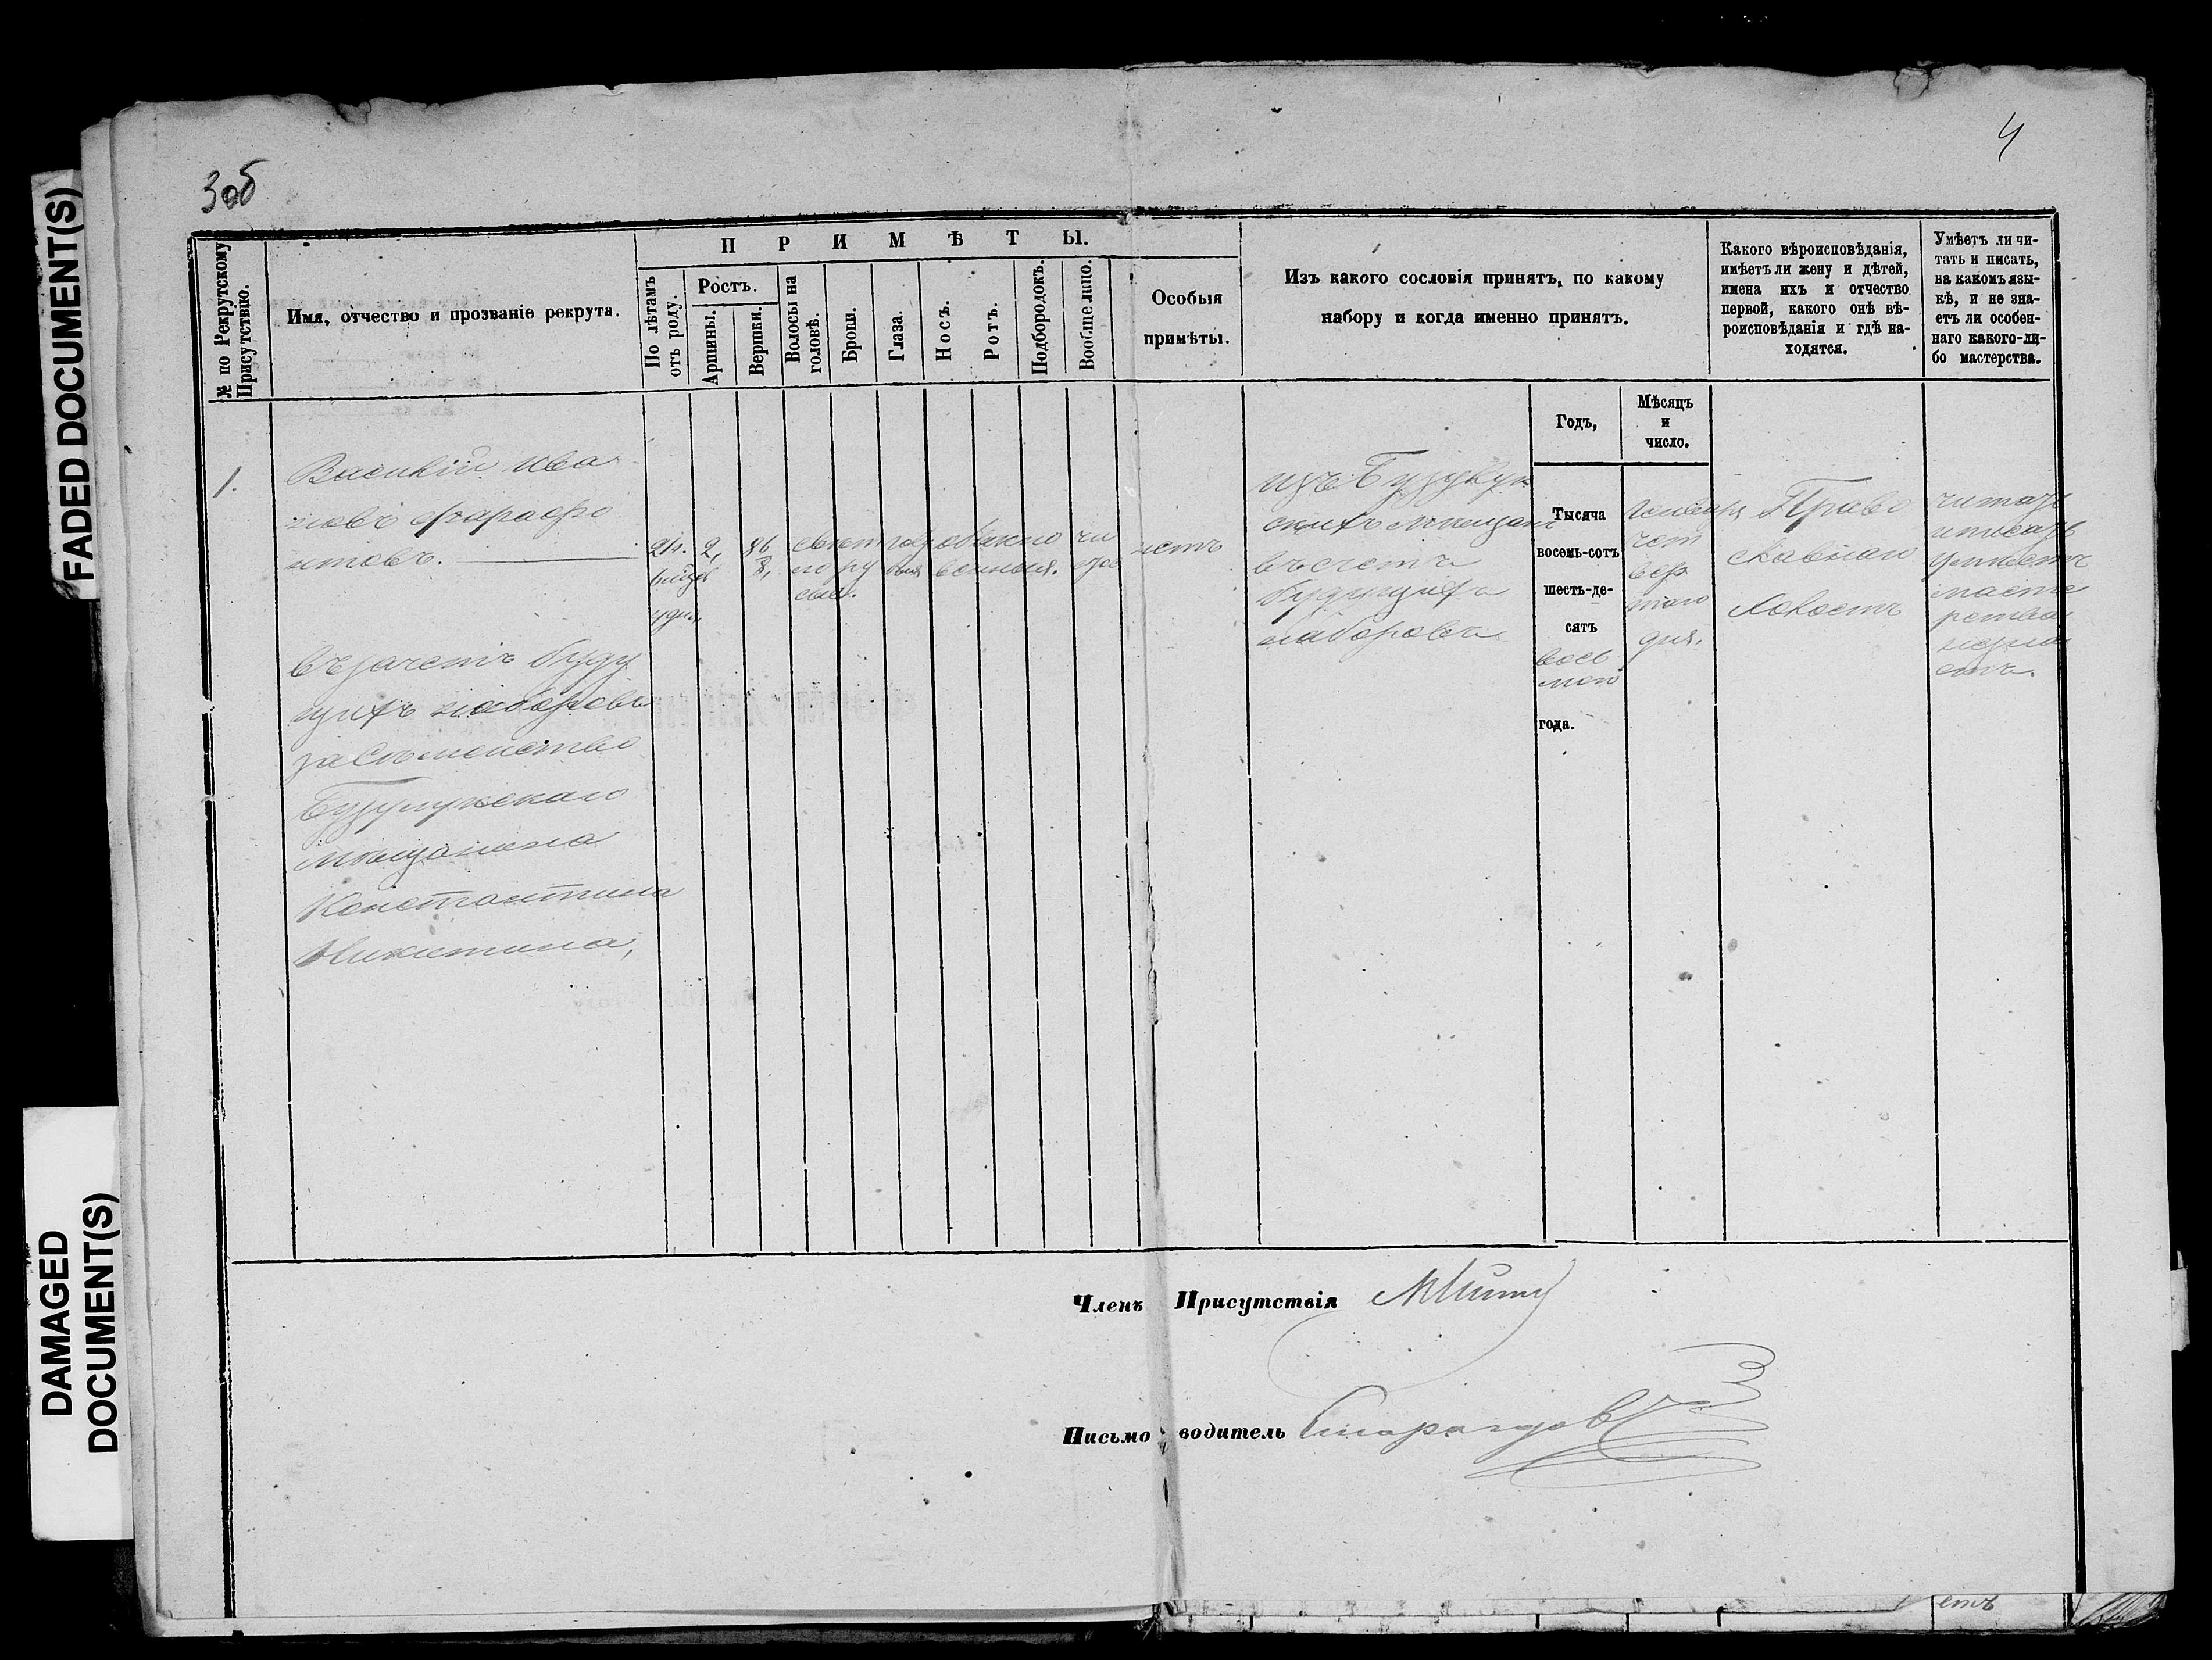 FADED DOCUMENT(S)
DAMAGED
DOCUMENT(S)
3 об
4
№ по Рекрутскому
Присутствію.
Имя, отчество и прозваніе рекрута.
ПРИМѢТЫ.
По лѣтамъ
отъ роду.
Ростъ.
Аршины.
Вершки.
Волосы на
головѣ.
Брови.
Глаза.
Носъ.
Ротъ.
Подбородокъ.
Вообще лицо.
Особыя
примѣты.
Изъ какого сословія принятъ, по какому
набору и когда именно принятъ.
Годъ,
Мѣсяцъ
и
число.
Какого вѣроисповѣданія,
имѣетъ ли жену и дѣтей,
имена ихъ и отчество
первой, какого онѣ вѣ-
роисповѣданія и гдѣ на-
ходятся.
Умѣетъ ли чи-
тать и писать,
на какомъ язы-
кѣ, и не зна-
етъ ли особен-
наго какого-ли-
бо мастерства.
1.
Василій Ива
новъ
въ зачетъ буду
щихъ наборовъ
за Семейство
Бузулукскаго
мѣщанина
Константина
Никитина,
2,
8,
обыкно
венныя.
чи
стое
нетъ
изъ Бузулук
скихъ мѣщанъ
въ счетъ
будущихъ
наборовъ
Тысяча
восемь-сотъ
шесть-де-
сятъ
вось
маго
года.
Генваря
чет
вер
таго
дня.
Право
славнаго
Холостъ
читать
и писать
умѣетъ
масте
рства
незна
етъ.
Членъ Присутствія
Письмоводитель
етъ